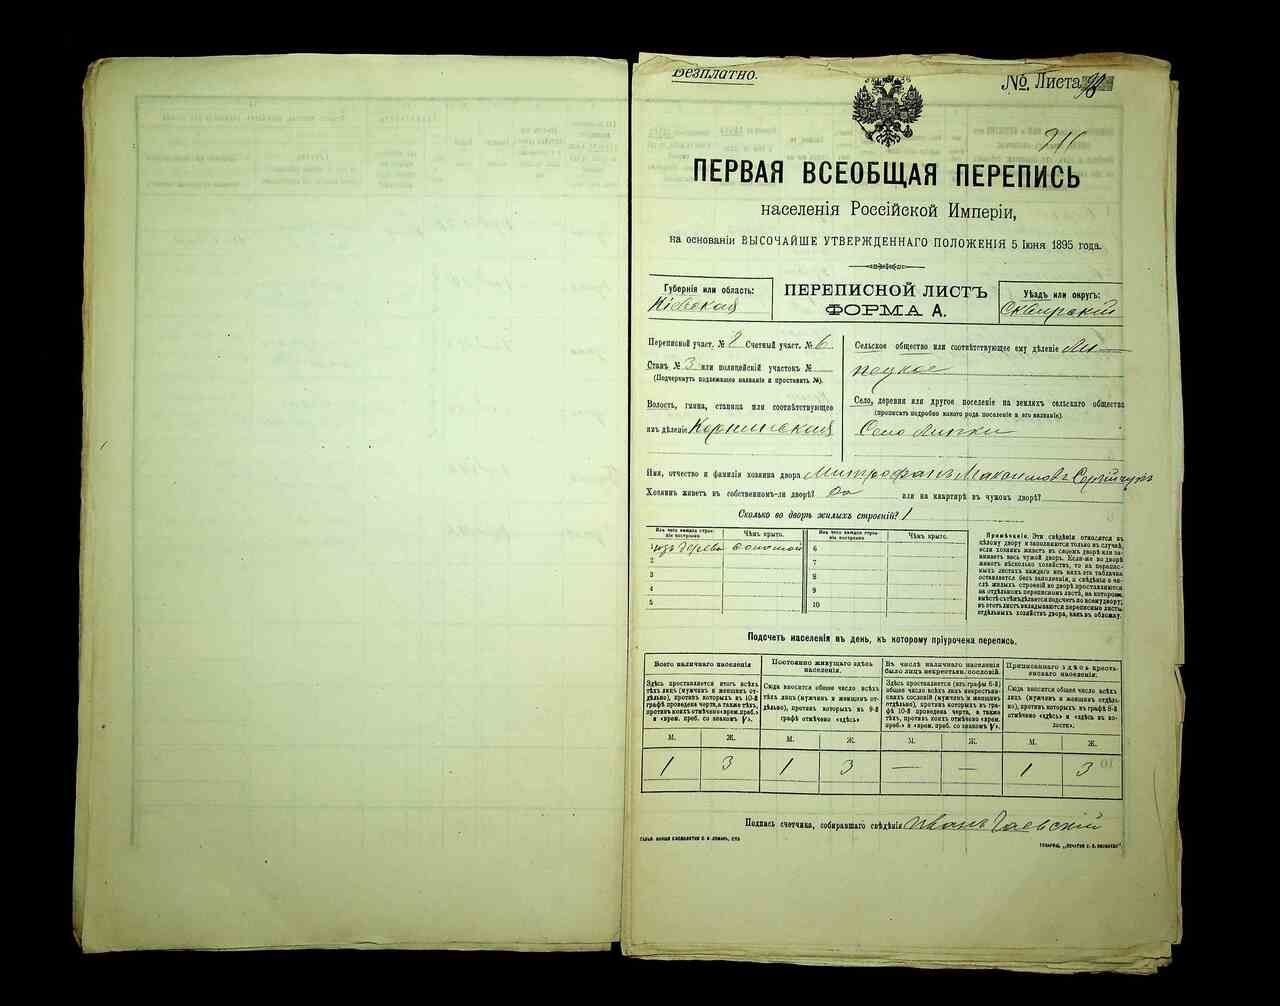 Безплатно.
№ Листа 98
ПЕРВАЯ ВСЕОБЩАЯ ПЕРЕПИСЬ
населенія Россійской Имперіи,
на основаніи ВЫСОЧАЙШЕ УТВЕРЖДЕННАГО ПОЛОЖЕНІЯ 5 Іюня 1895 года.
Губернія или область:
Кіевская
ПЕРЕПИСНОЙ ЛИСТЪ
ФОРМА А.
Уѣздъ или округъ:
Сквирскій
Переписной участ. № 2 Счетный участ. № 6
Станъ № 3 или полицейскій участокъ №
(Подчеркнуть подлежащее названіе и проставить №).
Волость, гмина, станица или соотвѣтствующее
имъ дѣленіе Корнинская
Сельское общество или соотвѣтствующее ему дѣленіе Ли-
пецкое
Село, деревня или другое поселеніе на земляхъ сельскаго общества
(прописать подробно какого рода поселеніе и его названіе).
Село Липки
Имя, отчество и фамилія хозяина двора Митрофанъ Максимовъ
Хозяинъ живетъ въ собственномъ-ли дворѣ? Да или на квартирѣ въ чужомъ дворѣ?
Сколько во дворѣ жилыхъ строеній? 1
Изъ чего каждое строе-
ніе построено
Чѣмъ крыто.
1 изъ дерева соломой
2
3
4
5
Изъ чего каждое строе-
ніе построено
Чѣмъ крыто.
6
7
8
9
10
Примѣчаніе. Эти свѣдѣнія относятся къ
цѣлому двору и заполняются только въ случаѣ,
если хозяинъ живетъ въ своемъ дворѣ или за-
нимаетъ весь чужой дворъ. Если-же во дворѣ
живетъ нѣсколько хозяйствъ, то на перепис-
ныхъ листахъ каждаго изъ нихъ эта табличка
оставляется безъ заполненія, а свѣдѣнія о чи-
слѣ жилыхъ строеній во дворѣ проставляются
на отдѣльномъ переписномъ листѣ, на которомъ
вмѣстѣ съ тѣмъ дѣлается подсчетъ по всему двору;
въ этотъ листъ вкладываются переписные листы
отдѣльныхъ хозяйствъ двора, какъ въ обложку.
Подсчетъ населенія въ день, къ которому пріурочена перепись.
Всего наличнаго населенія
Здѣсь проставляется итогъ всѣхъ
тѣхъ лицъ (мужчинъ и женщинъ от-
дѣльно), противъ которыхъ въ 10-й
графѣ проведена черта, а также тѣхъ,
противъ коихъ отмѣчено «врем. преб.»
и «врем. преб. со знакомъ V».
Постоянно живущаго здѣсь
населенія.
Сюда вносится общее число всѣхъ
тѣхъ лицъ (мужчинъ и женщинъ от-
дѣльно), противъ которыхъ въ 9-й
графѣ отмѣчено «здѣсь»
Въ числѣ наличнаго населенія
было лицъ некрестьян. сословій.
Здѣсь проставляется (изъ графы 6-й)
общее число всѣхъ лицъ некрестьян-
скихъ сословій (мужчинъ и женщинъ
отдѣльно), противъ которыхъ въ графѣ
10-й проведена черта, а также
тѣхъ, противъ коихъ отмѣчено «врем.
преб.» и «врем. преб. со знакомъ V».
Приписаннаго здѣсь кресть-
янскаго населенія.
Сюда вносится общее число всѣхъ
лицъ (мужчинъ и женщинъ отдѣль-
но), противъ которыхъ въ графѣ 8-й
отмѣчено «здѣсь» и «здѣсь въ во-
лости».
М. Ж. М. Ж. М. Ж. М. Ж.
1 3 1 3 — — 1 3
Подпись счетчика, собиравшаго свѣдѣнія Иванъ Гаевскій